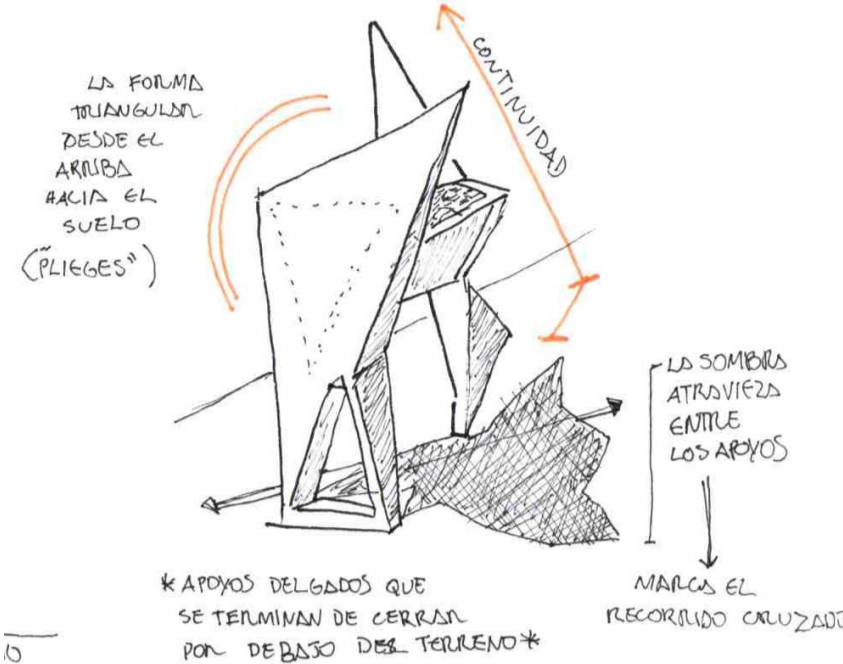 LA FORMA
TRIANGULAR
DESDE EL
ARRIBA
HACIA EL
SUELO
("PLIEGES")
CONTINUIDAD
LA SOMBRA
ATRAVIEZA
ENTRE
LOS APOYOS
MARCA EL
RECORRIDO CRUZADO
* APOYOS DELGADOS QUE
SE TERMINAN DE CERRAR
POR DEBAJO DEL TERRENO *